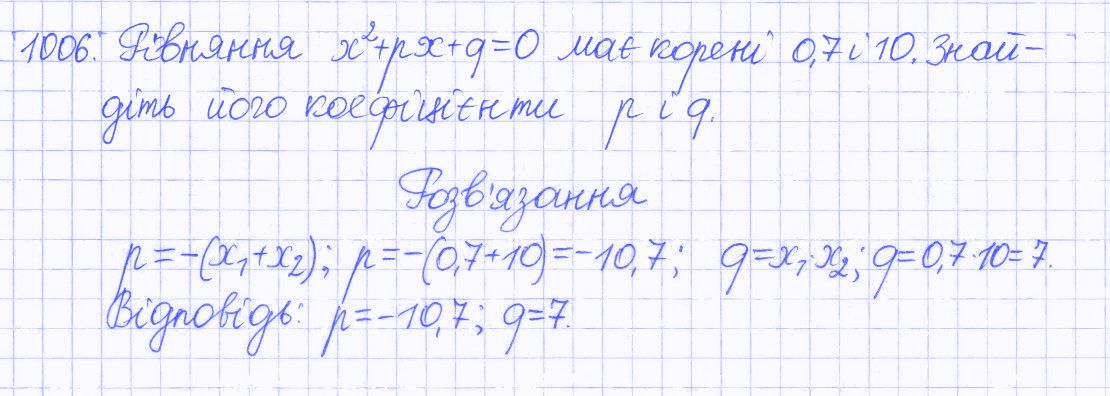 1006. Рівняння x²+px+q=0 має корені 0,7 і 10. Знай-
діть його коефіцієнти p і q.
Розв'язання
p=-(x₁+x₂); p=-(0,7+10)=-10,7; q=x₁·x₂; q=0,7·10=7.
Відповідь: p=-10,7; q=7.